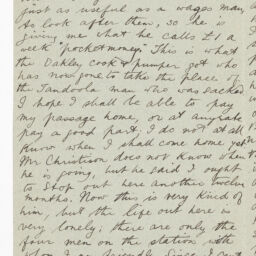 just as useful as a wages man
to look after them, so he is
giving me what he calls £1 a
week "pocket money". This is what
the Oakley cook & pumper got who
has now gone to take the place of
the Tandoola man who was sacked.
I hope I shall be able to pay
my passage home, or at anyrate
pay a good part. I do not at all
know when I shall come home yet
Mr Christison does not know when
he is going, but he said I ought
to stop out here another twelve
months. Now this is very kind of
him, but the life out here is
very lonely; there are only the
four men on the station with
whom I am friendly